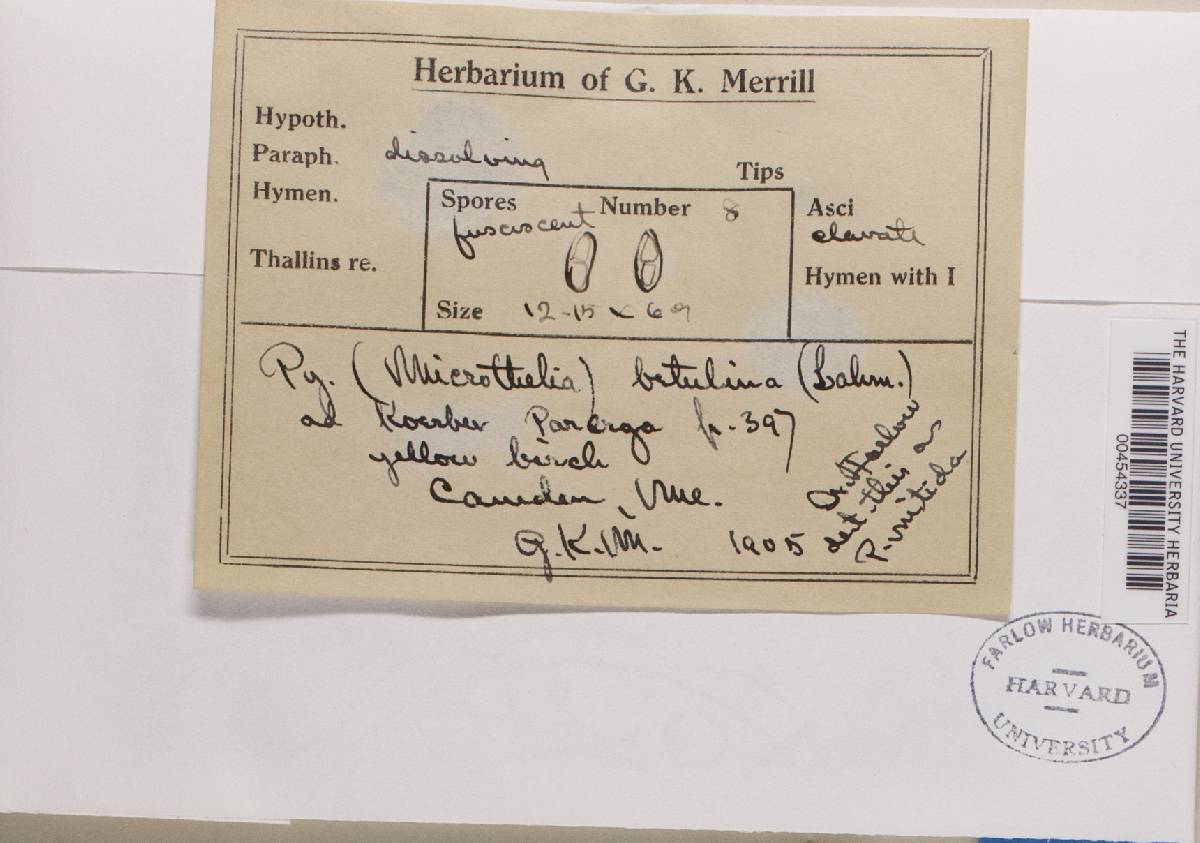 Herbarium of G. K. Merrill
Hypoth.
Paraph. dissolving
Tips
Hymen.
Spores Number 8
fuscescent
Asci
clavate
Thallins re.
Hymen with I
Size 12-15 x 6
Py. (Microthelia) betulina (Lahm.)
ad Koerber Parerga p. 397
yellow birch
Camden, Me.
G.K.M. 1905
Dr. Farlow
det. this as
P. nitida
THE HARVARD UNIVERSITY HERBARIA
00454337
FARLOW HERBARIUM
HARVARD
UNIVERSITY